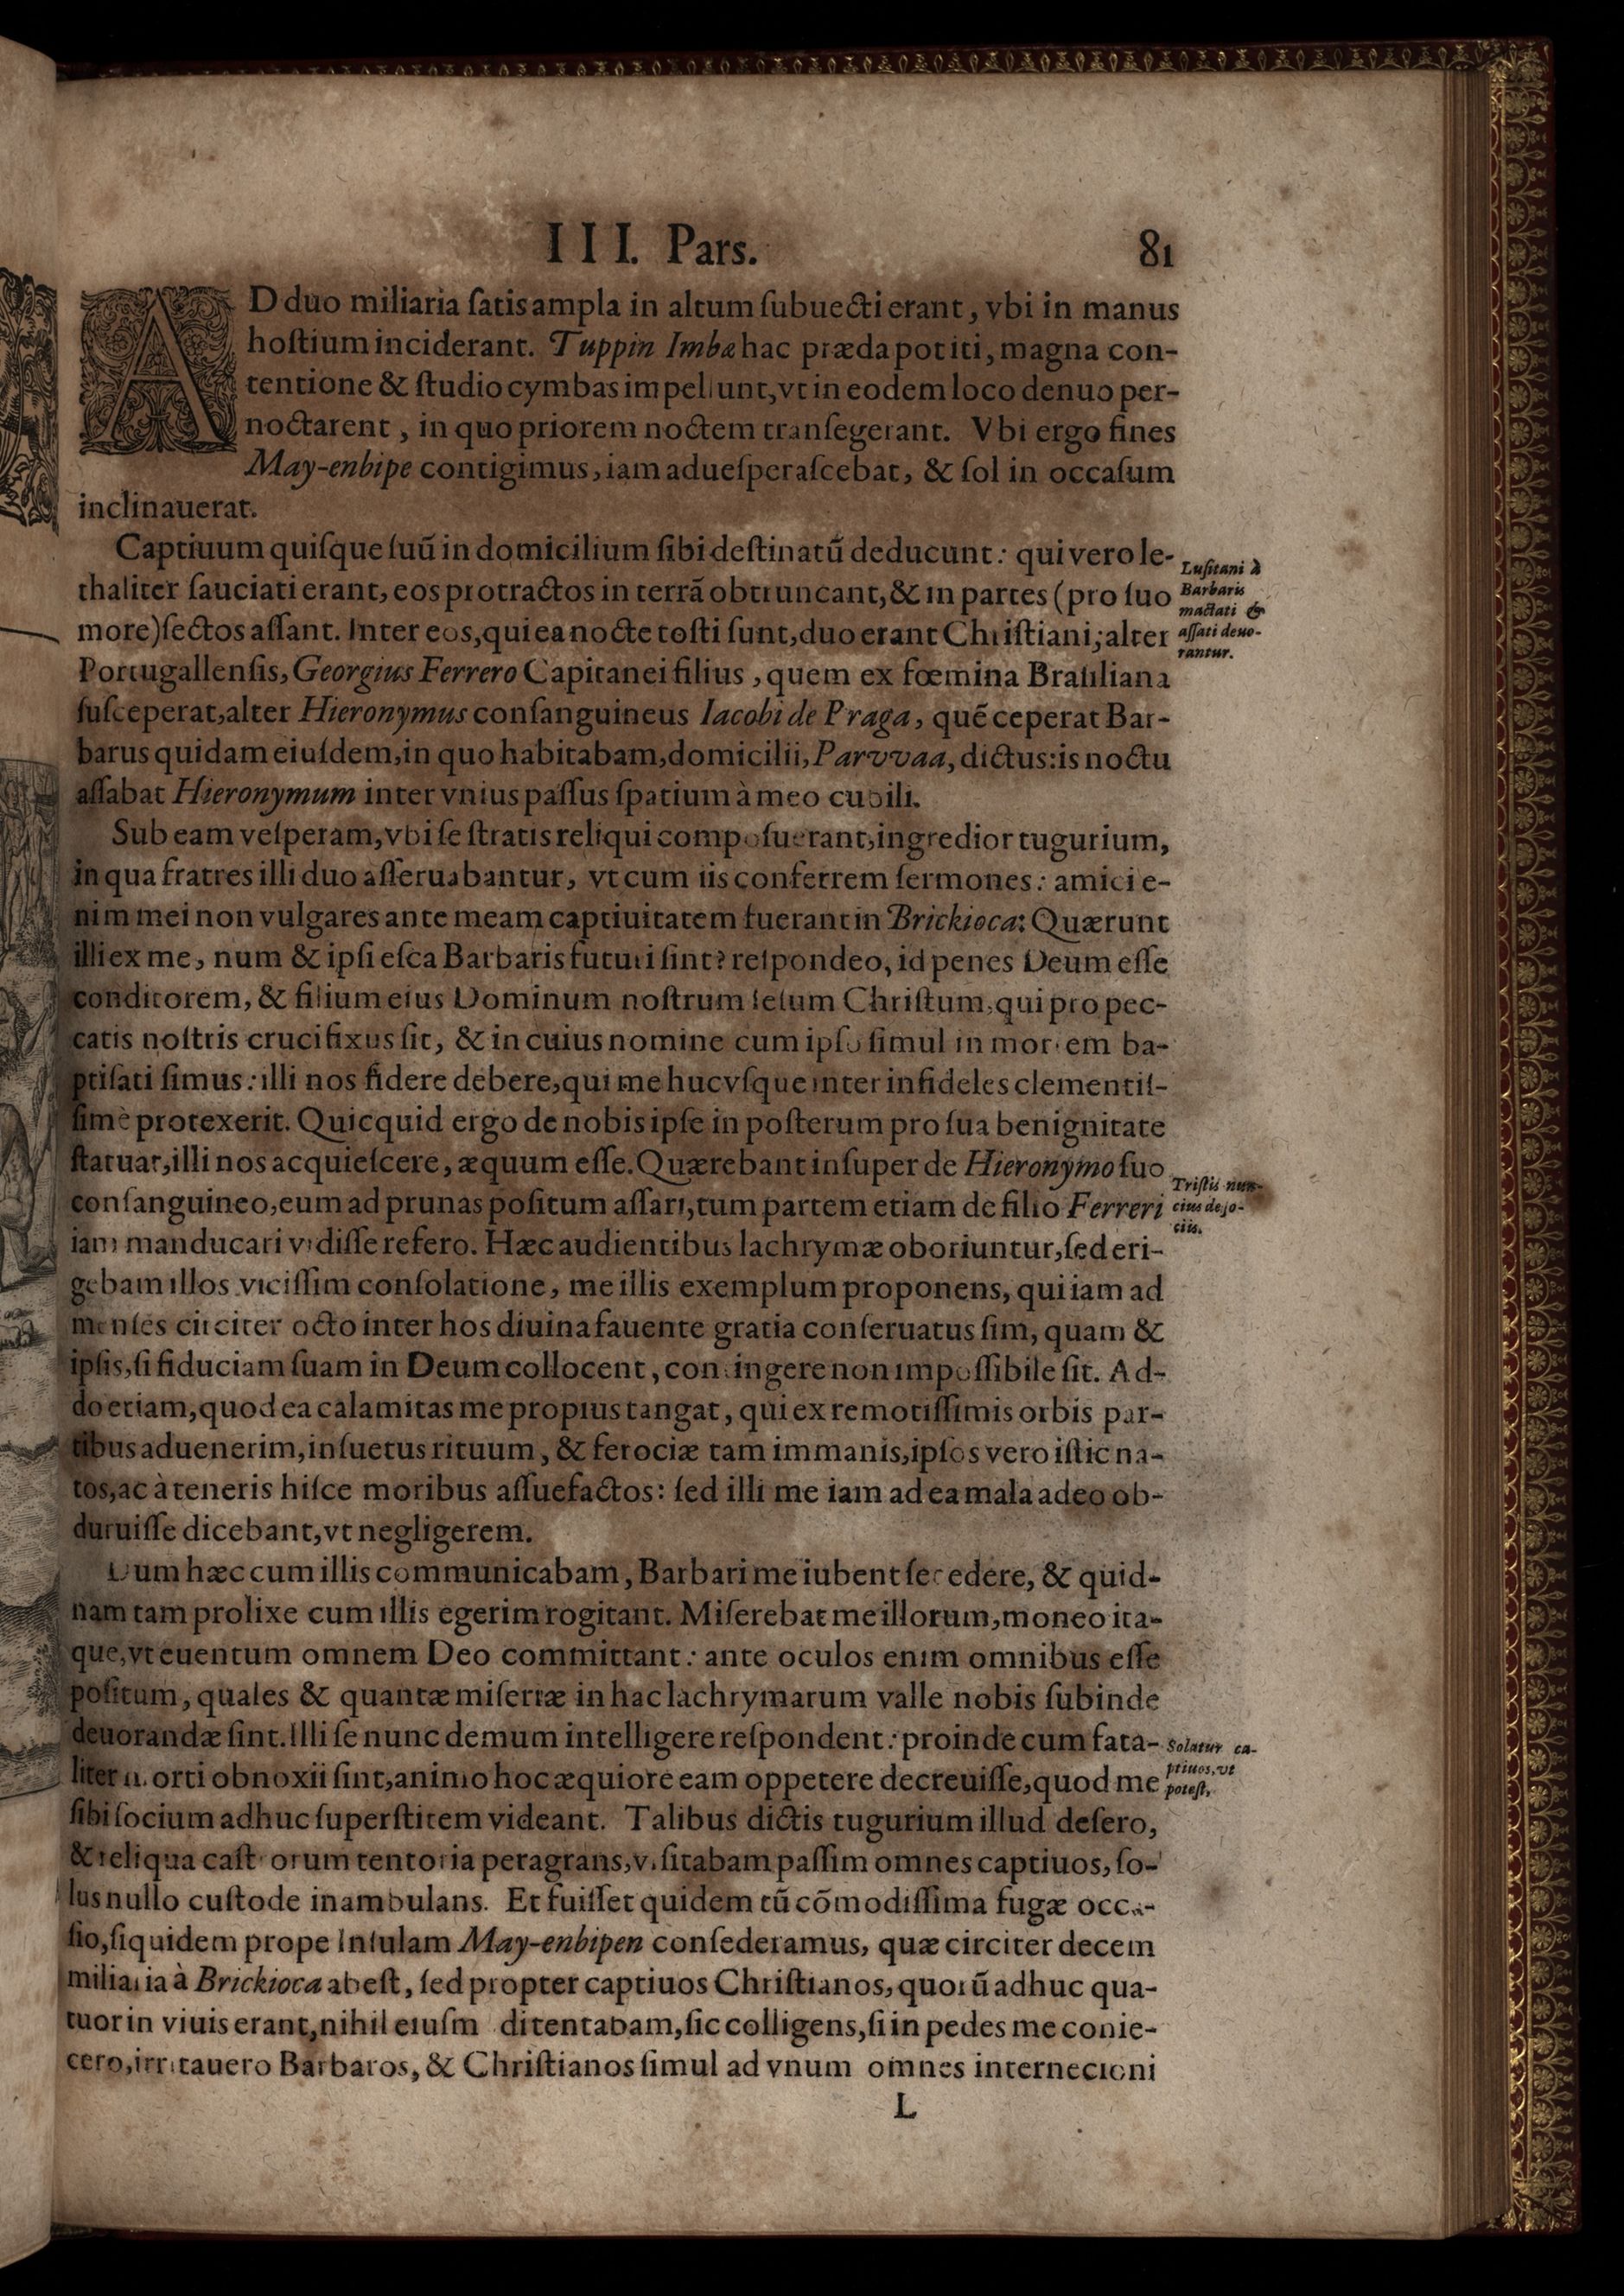 III. Pars.
81
AD duo miliaria ſatis ampla in altum ſubuecti erant, vbi in manus
hoſtium inciderant. Tuppin Imbæ hac præda potiti, magna con-
tentione & ſtudio cymbas impellunt, vt in eodem loco denuo per-
noctarent, in quo priorem noctem tranſegerant. Vbi ergo fines
May-enbipe contigimus, iam adueſperaſcebat, & ſol in occaſum
inclinauerat.
Captiuum quiſque ſuū in domicilium ſibi deſtinatū deducunt: qui vero le-
thaliter ſauciati erant, eos protractos in terrā obtruncant, & in partes (pro ſuo
more) ſectos aſſant. Inter eos, qui ea nocte toſti ſunt, duo erant Chriſtiani; alter
Portugallenſis, Georgius Ferrero Capitanei filius, quem ex fœmina Braſiliana
ſuſceperat, alter Hieronymus conſanguineus Iacobi de Praga, quē ceperat Bar-
barus quidam eiuſdem, in quo habitabam, domicilii, Parvvaa, dictus: is noctu
aſſabat Hieronymum inter vnius paſſus ſpatium à meo cubili.
Luſitani à
Barbaris
mactati &
aſſati deuo-
rantur.
Sub eam veſperam, vbi ſe ſtratis reliqui compoſuerant, ingredior tugurium,
in qua fratres illi duo aſſeruabantur, vt cum iis conferrem ſermones: amici e-
nim mei non vulgares ante meam captiuitatem fuerant in Brickioca: Quærunt
illi ex me, num & ipſi eſca Barbaris futuri ſint? reſpondeo, id penes Deum eſſe
conditorem, & filium eius Dominum noſtrum Ieſum Chriſtum, qui pro pec-
catis noſtris crucifixus ſit, & in cuius nomine cum ipſo ſimul in mortem ba-
ptiſati ſimus: illi nos fidere debere, qui me hucvſque inter infideles clementiſ-
ſimè protexerit. Quicquid ergo de nobis ipſe in poſterum pro ſua benignitate
ſtatuat, illi nos acquieſcere, æquum eſſe. Quærebant inſuper de Hieronymo ſuo
conſanguineo, eum ad prunas poſitum aſſari, tum partem etiam de filio Ferreri
iam manducari vidiſſe refero. Hæc audientibus lachrymæ oboriuntur, ſed eri-
gebam illos viciſſim conſolatione, me illis exemplum proponens, qui iam ad
menſes circiter octo inter hos diuina fauente gratia conſeruatus ſim, quam &
ipſis, ſi fiduciam ſuam in Deum collocent, contingere non impoſſibile ſit. Ad-
do etiam, quod ea calamitas me propius tangat, qui ex remotiſſimis orbis par-
tibus aduenerim, inſuetus rituum, & ferociæ tam immanis, ipſos vero iſtic na-
tos, ac à teneris hiſce moribus aſſuefactos: ſed illi me iam ad ea mala adeo ob-
duruiſſe dicebant, vt negligerem.
Triſtis nun-
cius de ſo-
ciis.
Dum hæc cum illis communicabam, Barbari me iubent ſecedere, & quid-
nam tam prolixe cum illis egerim rogitant. Miſerebat me illorum, moneo ita-
que, vt euentum omnem Deo committant: ante oculos enim omnibus eſſe
poſitum, quales & quantæ miſeriæ in hac lachrymarum valle nobis ſubinde
deuorandæ ſint. Illi ſe nunc demum intelligere reſpondent: proinde cum fata-
liter morti obnoxii ſint, animo hoc æquiore eam oppetere decreuiſſe, quod me
ſibi ſocium adhuc ſuperſtitem videant. Talibus dictis tugurium illud deſero,
& reliqua caſtrorum tentoria peragrans, viſitabam paſſim omnes captiuos, ſo-
lus nullo cuſtode inambulans. Et fuiſſet quidem tū cōmodiſſima fugæ occa-
ſio, ſiquidem prope Inſulam May-enbipen conſederamus, quæ circiter decem
miliaria à Brickioca abeſt, ſed propter captiuos Chriſtianos, quorū adhuc qua-
tuor in viuis erant, nihil eiuſmditentabam, ſic colligens, ſi in pedes me conie-
cero, irritauero Barbaros, & Chriſtianos ſimul ad vnum omnes internecioni
Solatur ca-
ptiuos, vt
poteſt,
L